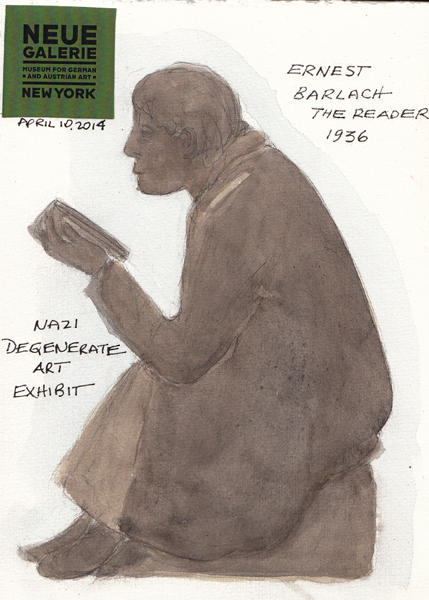 NEUE
GALERIE
MUSEUM FOR GERMAN
• AND AUSTRIAN ART •
NEW YORK
APRIL 10, 2014
ERNEST
BARLACH
THE READER
1936
NAZI
DEGENERATE
ART
EXHIBIT